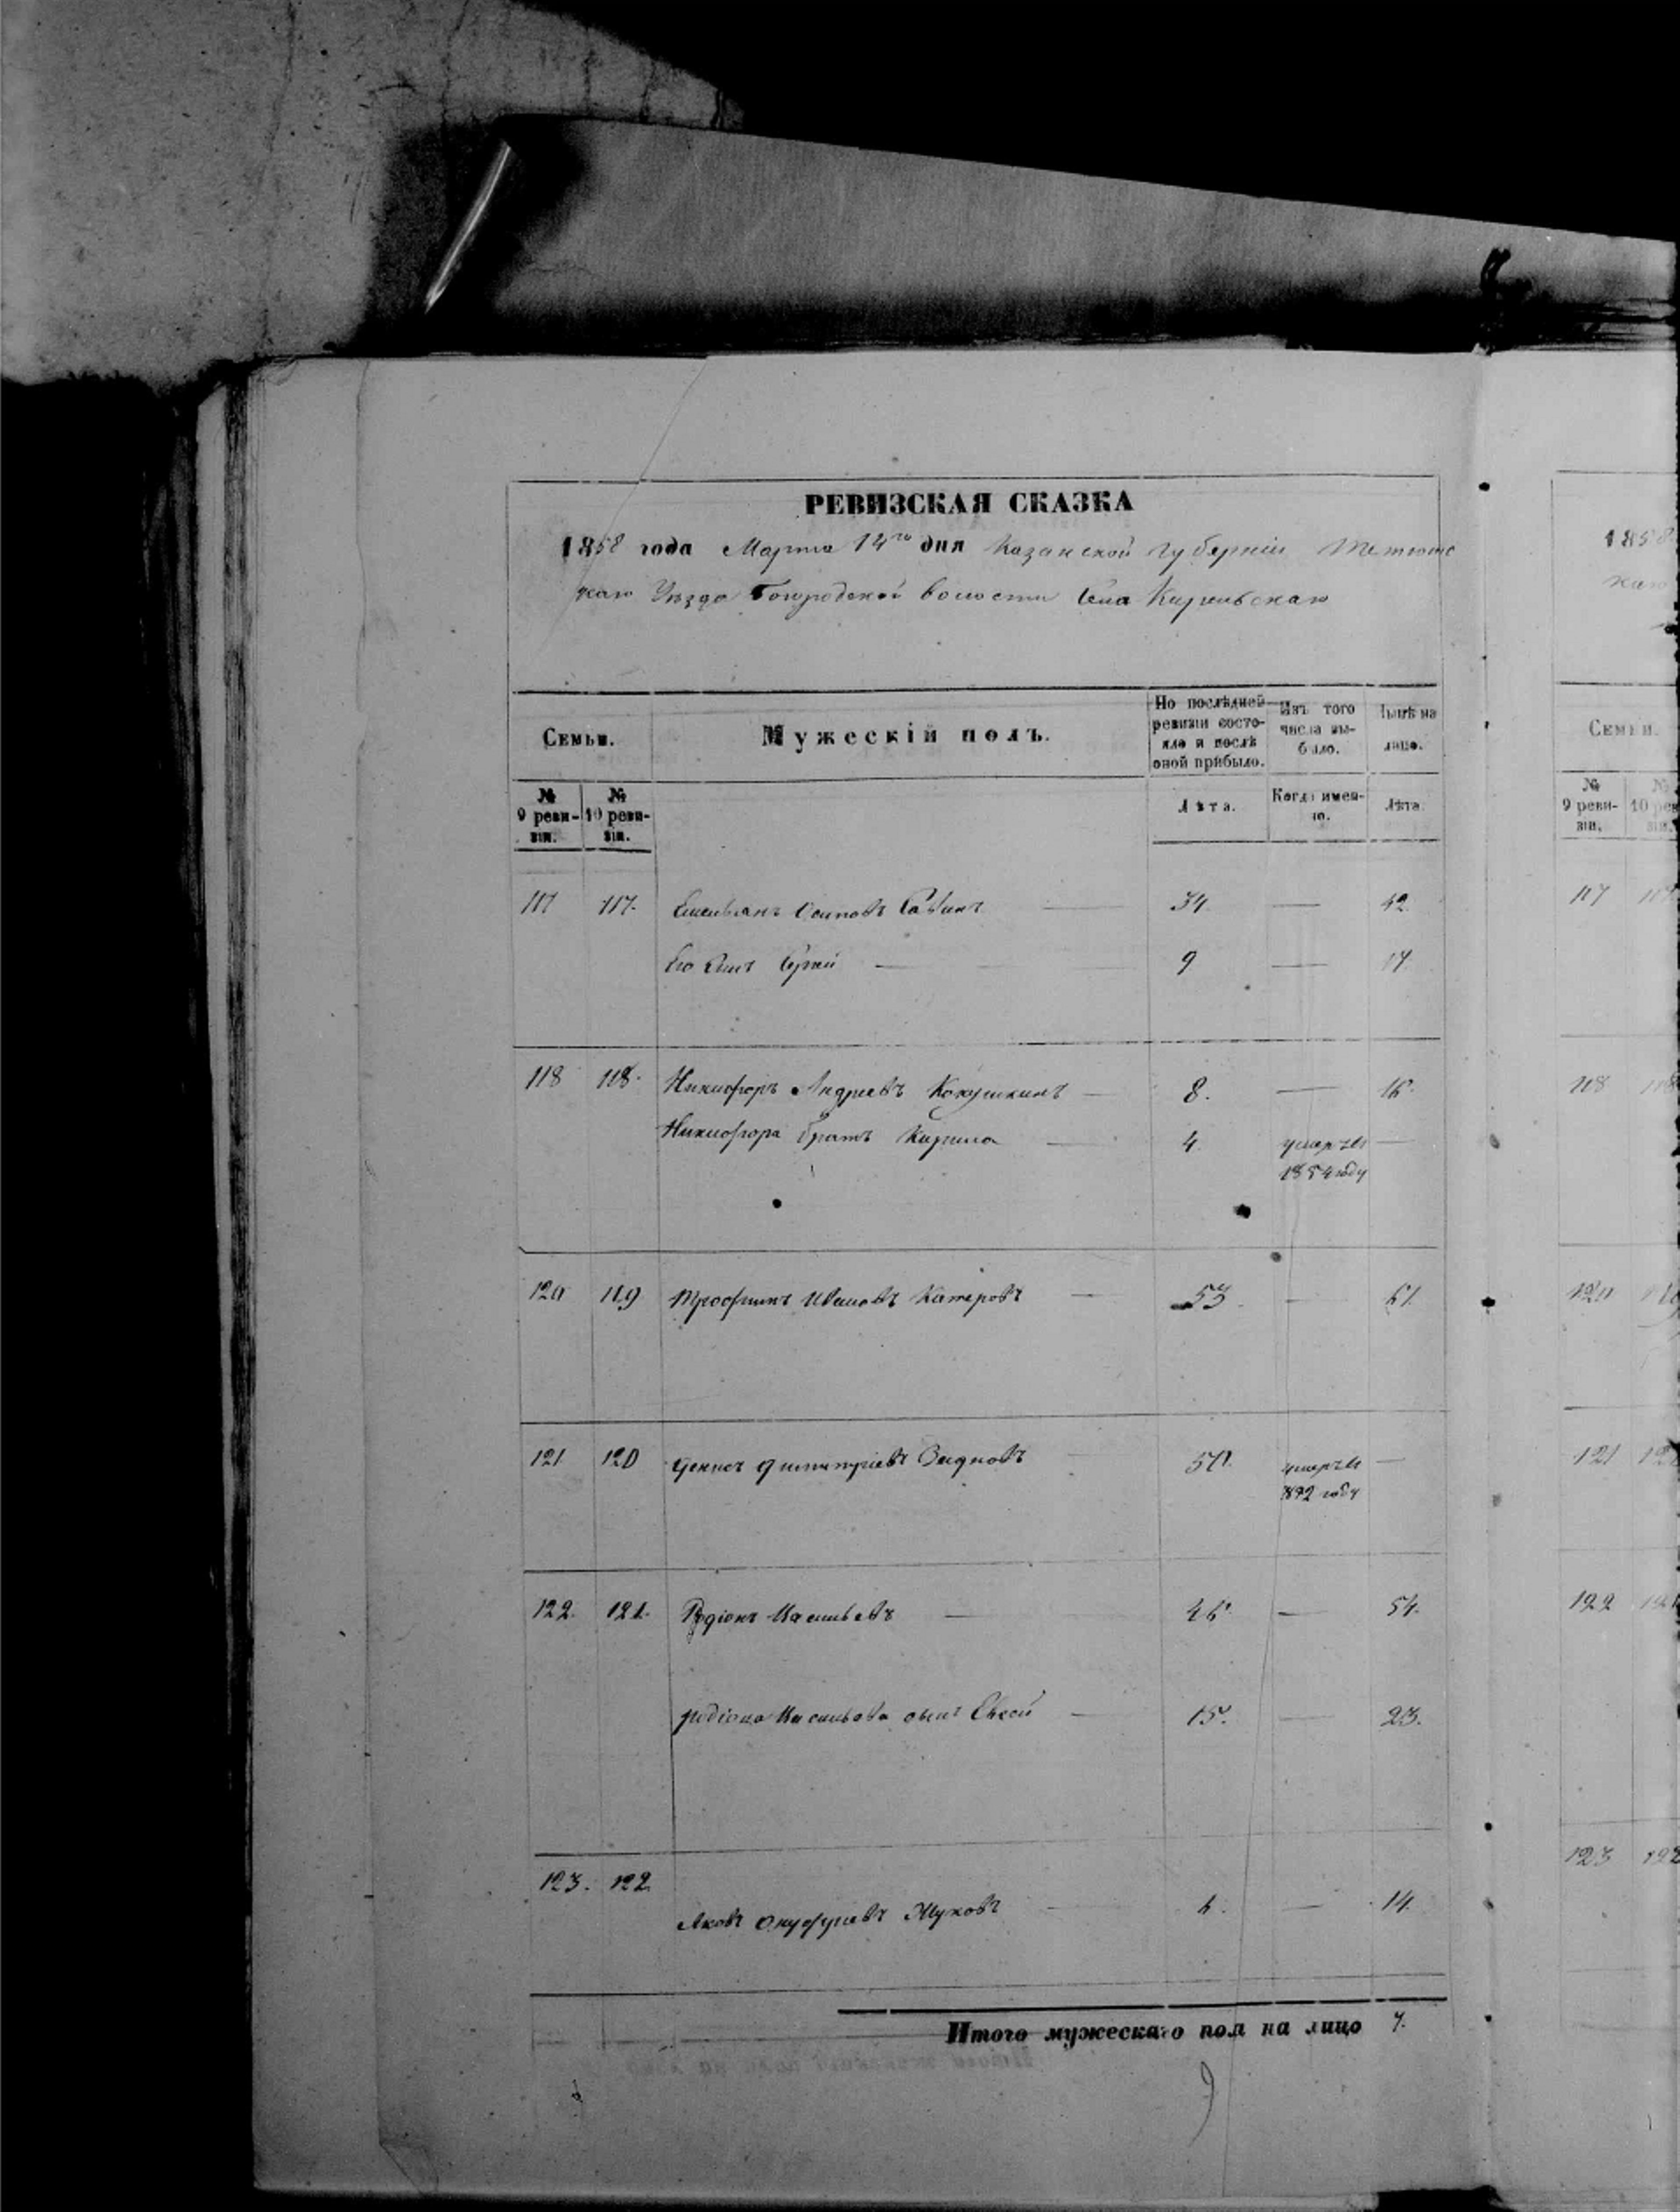 РЕВИЗСКАЯ СКАЗКА
1858 года Марта 14го дня Казанской губерніи Тетюшс
каго Уѣзда Богородской волости Села Кирельскаго
Семьи.
Мужескій полъ.
По послѣдней ревизіи состояло и послѣ оной прибыло.
Изъ того числа выбыло.
Нынѣ на лицо.
№ 9 ревизіи.
№ 10 ревизіи.
Лѣта.
Когда именно.
Лѣта.
117 117. Емельянъ Осиповъ Савинъ 34 — 42
Его Сынъ Сергей — 9 — 17
118 118. Никифоръ Андреевъ Кокушкинъ — 8. — 16.
Никифора братъ Кирила — 4. умеръ въ —
1854 году
120 119 Трофимъ Ивановъ Катеровъ — 53. — 61.
121 120 Денисъ Дмитріевъ — 50. умеръ въ —
году
122. 121. Родіонъ Васильевъ — 46. — 54.
родіона Васильева сынъ Евсей — 15. — 23.
123. 122 Яковъ Онуфріевъ Жуковъ — 6. — 14.
Итого мужескаго пол на лицо 7.
Семьи.
№ 9 реви-
зіи.
1858
117
118
120
121
122
123